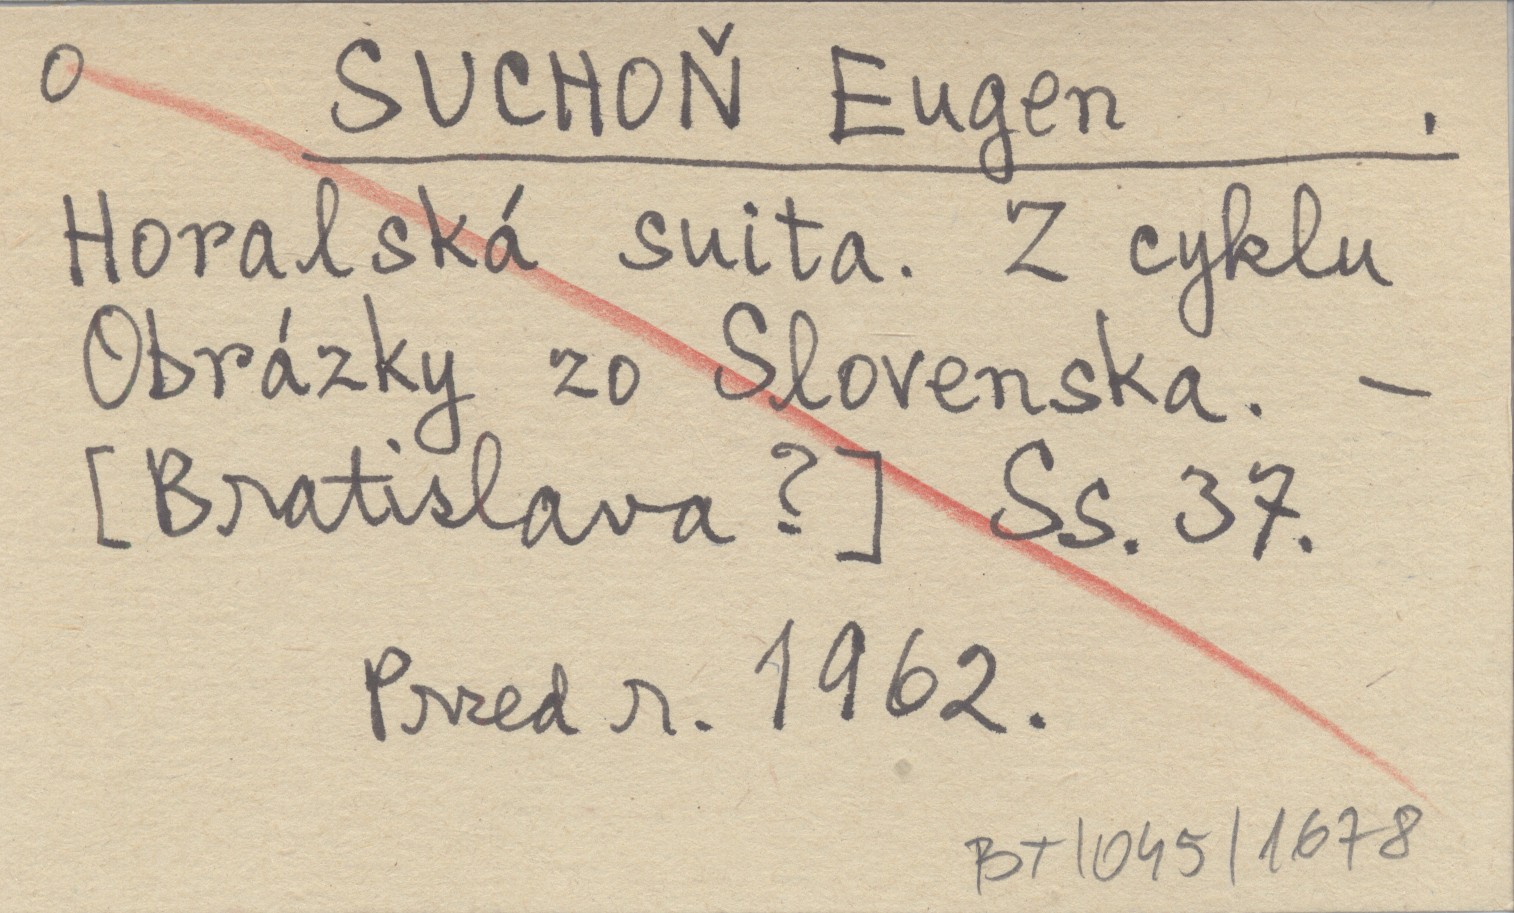 O SUCHOŇ Eugen .
Horalská suita. Z cyklu
Obrázky zo Slovenska. –
[Bratislava?] Ss. 37.
Przed r. 1962.
BT/045/1678